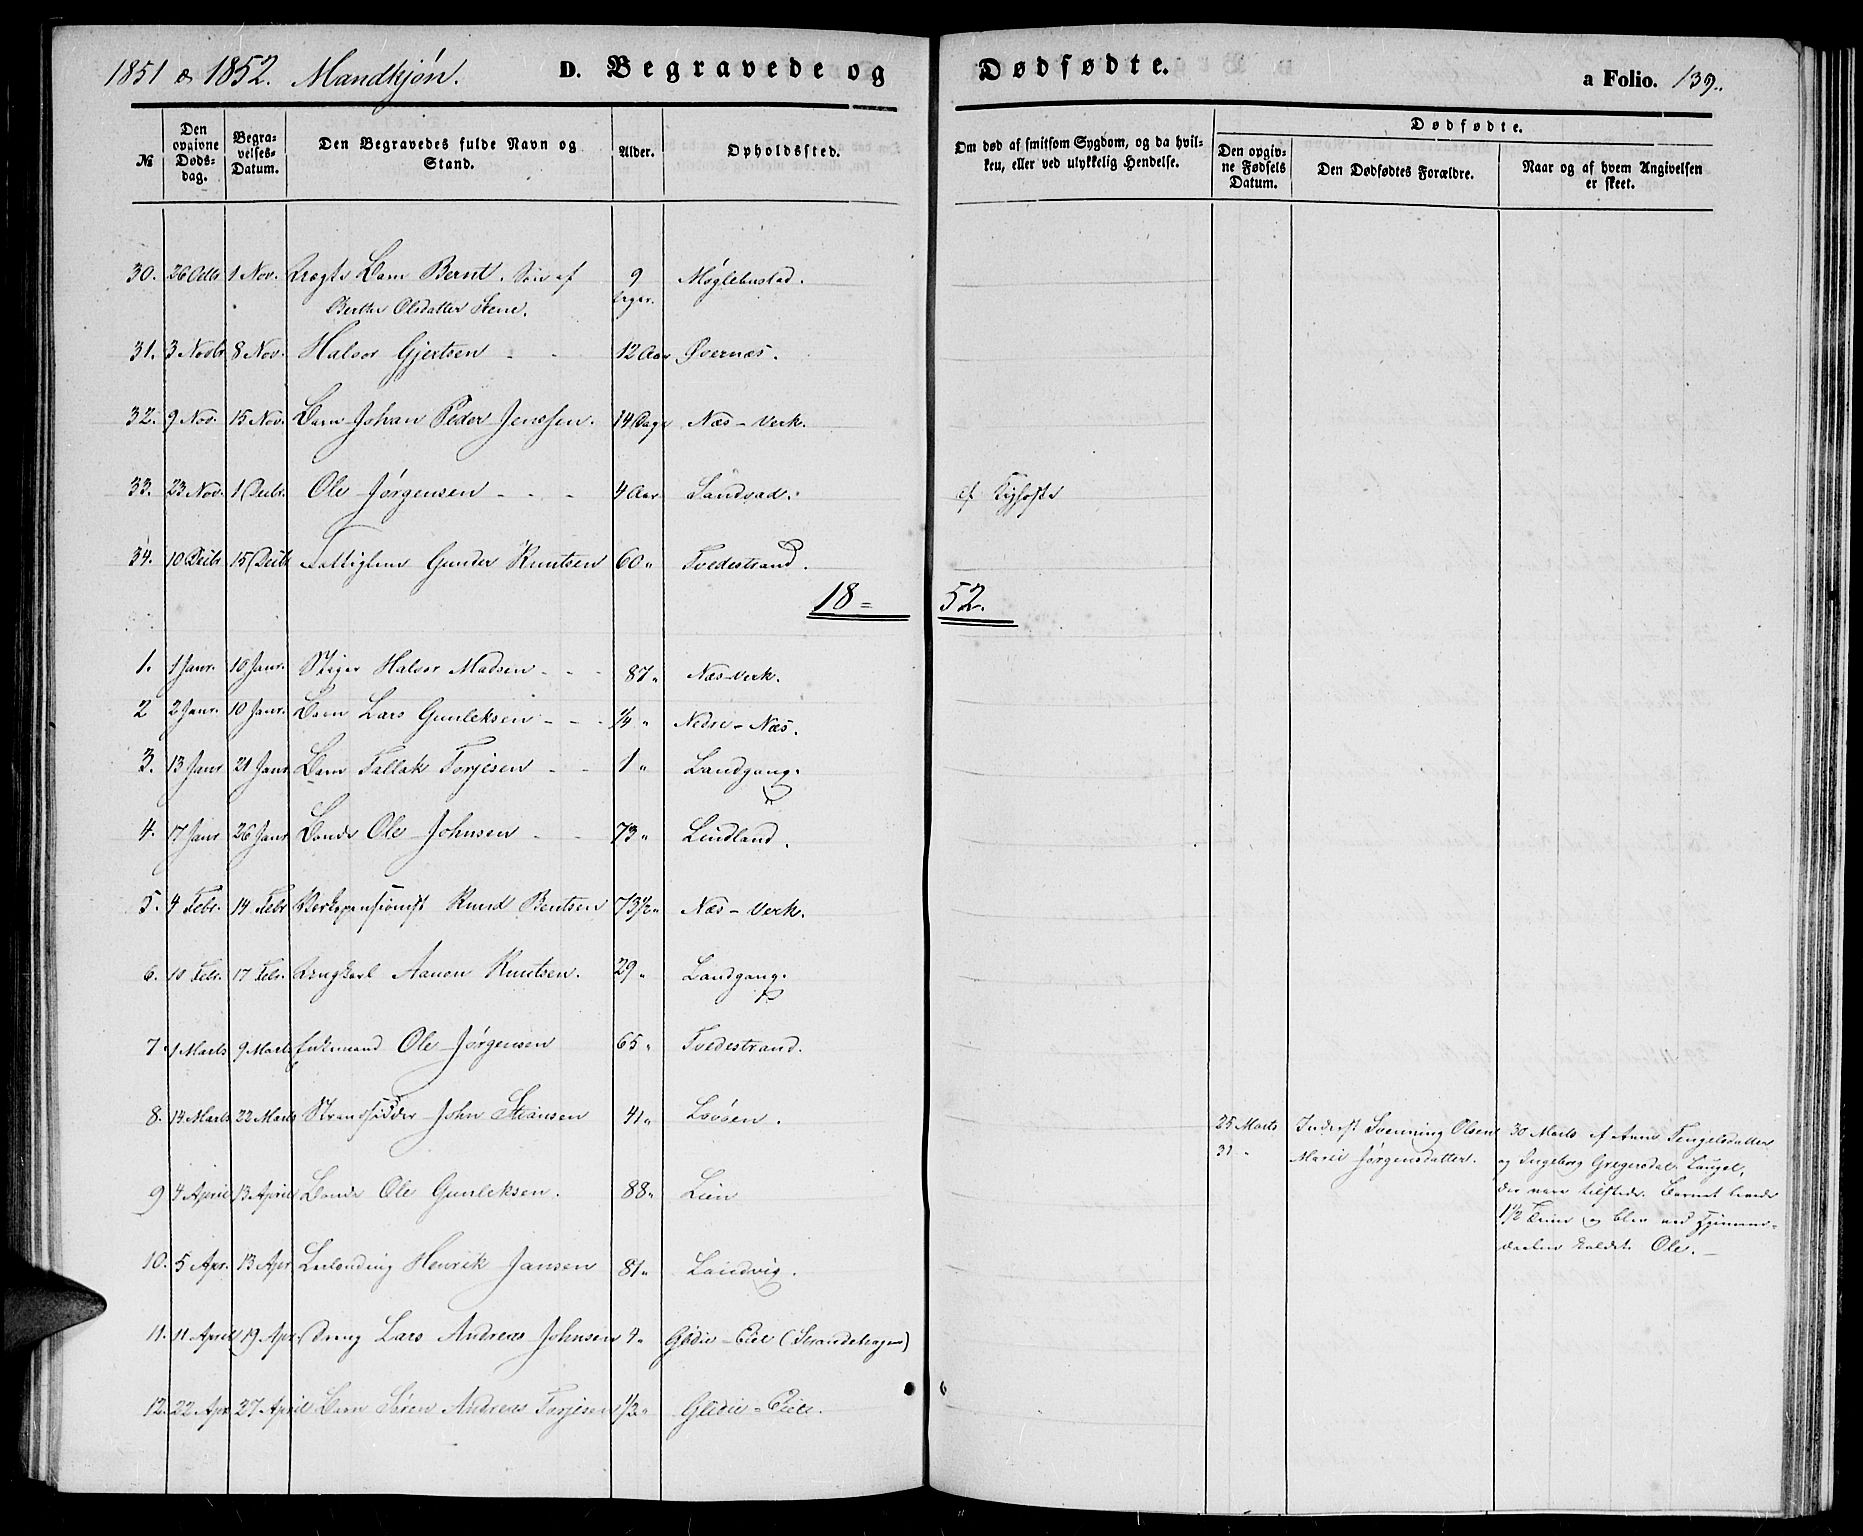 1851 & 1852. Mandkjøn. D. Begravede og Dødfødte. a Folio. 139.
№
Den opgivne Døds-dag.
Begra-velses-Datum.
Den Begravedes fulde Navn og Stand.
Alder.
Opholdssted.
Om død af smitsom Sygdom, og da hvil-ken, eller ved ulykkelig Hendelse.
Dødfødte.
Den opgiv-ne Fødsels Datum.
Den Dødfødtes Forældre.
Naar og af hvem Angivelsen er skeet.
30. 26 Octb 1 Nov. Uægte Barn Bernt. Søn af 9 Uger. Møglebustad.
Berthe Olsdatter Stene.
31. 3 Novbr 8 Nov. Halvor Gjertsen - - 12 Aar Øvernæs.
32. 9 Nov. 15 Nov. Barn Johan Peder Jenssen. 14 Dage Næs-Verk.
33. 23 Nov. 1 Decbr. Ole Jørgensen - - - 4 Aar Sandvad. af Kighoste
34. 10 Decbr 15 Decbr Fattiglem Gunder Knutsen 60 " Tvedestrand.
18=52.
1. 1 Janr. 10 Janr. Stiger Halvor Madsen - - - 87 " Næs-Verk.
2 2 Janr. 10 Janr. Barn Lars Gunleksen - - - 1/4 " Nedre-Næs.
3. 13 Janr 21 Janr Barn Tallak Torjesen - - 1 " Landgang.
4. 17 Janr 26 Janr Bonde Ole Johnsen - - 73 " Lindland.
5. 4 Febr. 14 Febr Verkspensionist Knud Bentsen 73 1/2 " Næs-Verk.
6. 10 Febr. 17 Febr. Ungkarl Aanon Knutsen. 29 " Landgang.
7. 1 Marts 9 Marts Enkemand Ole Jørgensen 65 " Tvedestrand.
8. 14 Marts 22 Marts Strandsidder John Stiansen 41 "
25 Marts Inderst Svenning Olsen 30 Marts af Anne Tengelsdatter
31 " Marie Jørgensdatter. og Ingeborg Gregersdat.
der vare tilstede. Barnet levede
9 4 April 13 April Bonde Ole Gunleksen. 88 " Lien
1 1/2 Time og blev ved Hjemme-
daaben kaldet Ole. -
10. 5 Apr. 13 Apr Henrik Jansen 81 " Landvig.
11. 11 April 19 Apr. Dreng Lars Andreas Johnsen 4 " Glidie-Eiet (Strandehagen)
12. 22 Apr 27 April Barn Søren Andreas Torjesen 1/2 " Glidie-Eiet.